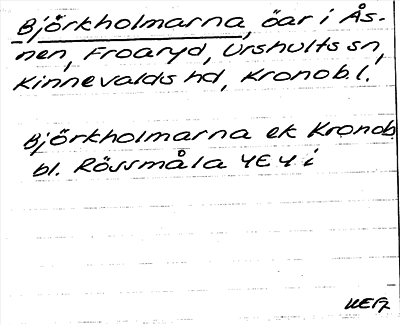 Björkholmarna, öar i Ås-
nen, Froaryd, Urshults sn,
Kinnevalds hd, Kronob.l.
Björkholmarna ek Kronob
bl. Rössmåla 4E4i